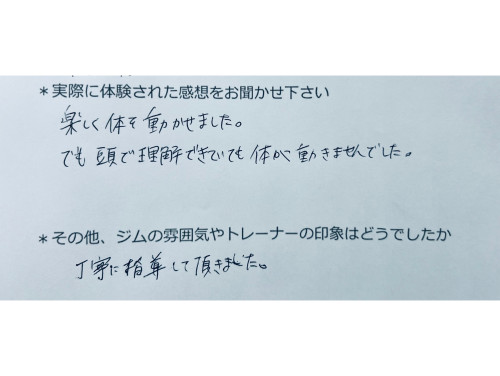 *実際に体験された感想をお聞かせ下さい
楽しく体を動かせました。
でも頭で理解できていても体が動きませんでした。
*その他、ジムの雰囲気やトレーナーの印象はどうでしたか
丁寧に指導して頂きました。